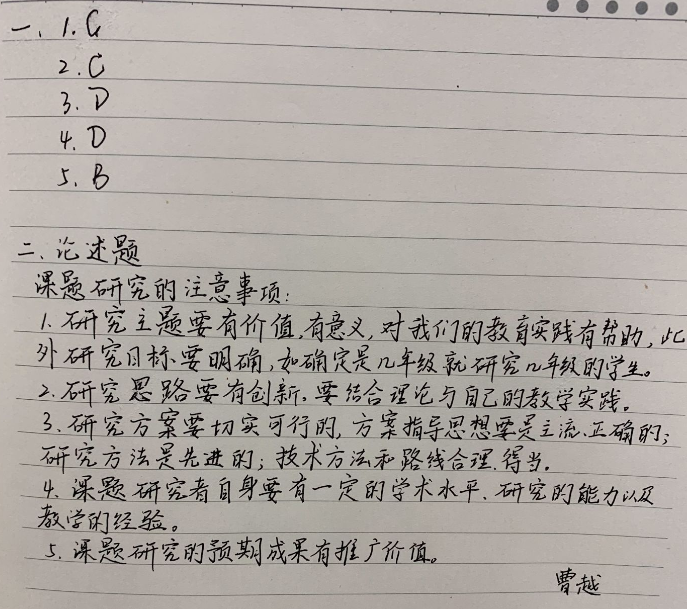 一、1. C
2. C
3. D
4. D
5. B
二、论述题
课题研究的注意事项:
1. 研究主题要有价值,有意义,对我们的教育实践有帮助,此
外研究目标要明确,如确定是几年级就研究几年级的学生。
2. 研究思路要有创新,要结合理论与自己的教学实践。
3. 研究方案要切实可行的,方案指导思想要是主流、正确的;
研究方法是先进的;技术方法和路线合理、得当。
4. 课题研究者自身要有一定的学术水平、研究的能力以及
教学的经验。
5. 课题研究的预期成果有推广价值。
曹越